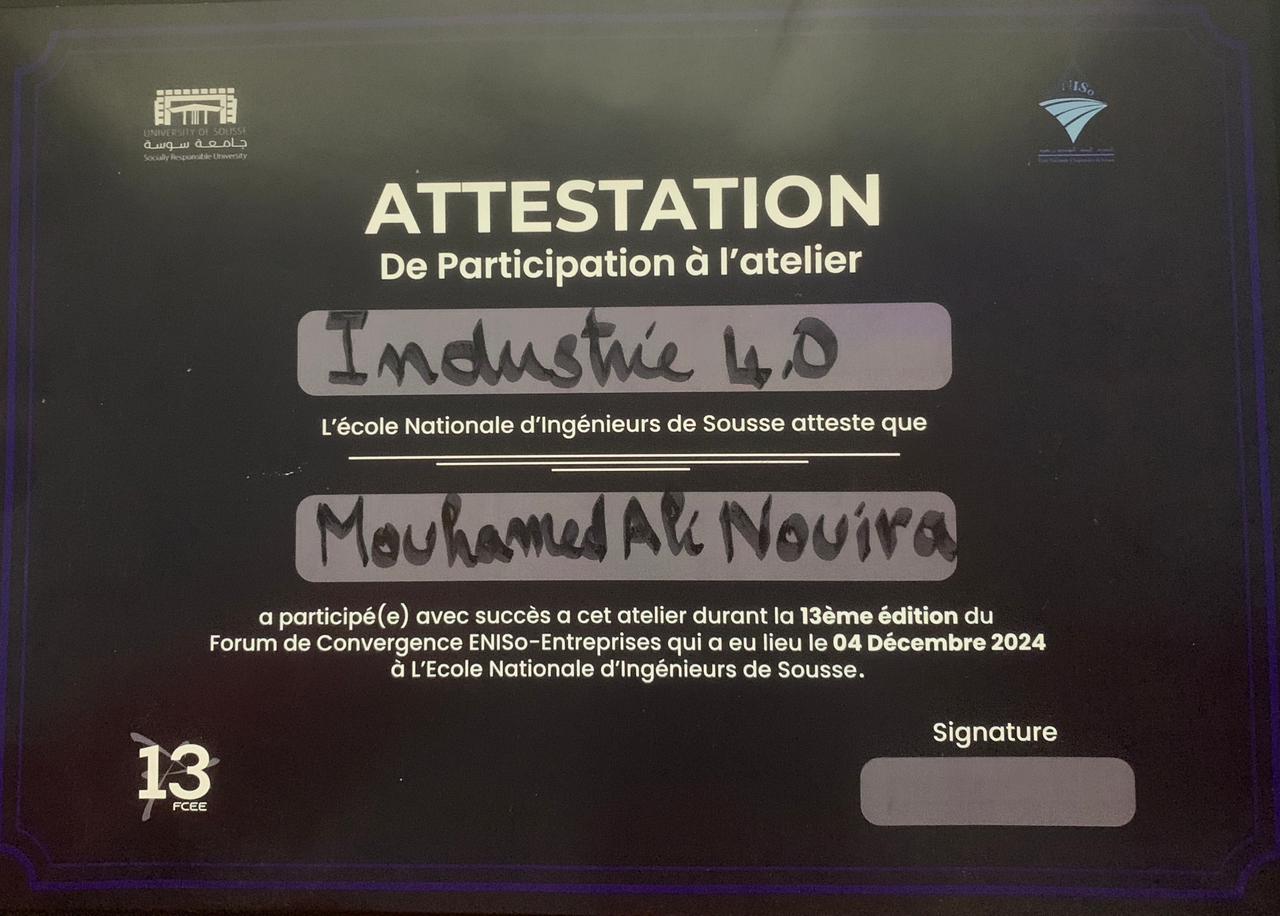 UNIVERSITY OF SOUSSE
جامعة سوسة
Socially Responsible University
ENISo
ATTESTATION
De Participation à l'atelier
Industrie 4.0
L'école Nationale d'Ingénieurs de Sousse atteste que
Mouhamed Ali Nouira
a participé(e) avec succès a cet atelier durant la 13ème édition du
Forum de Convergence ENISo-Entreprises qui a eu lieu le 04 Décembre 2024
à L'Ecole Nationale d'Ingénieurs de Sousse.
Signature
13
FCEE